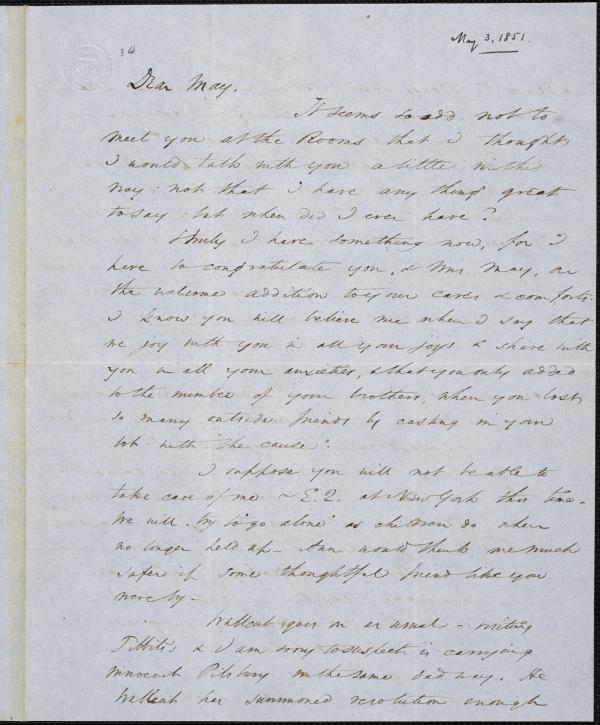 May 3, 1851.
34
Dear May.
It seems so odd not to
meet you at the Rooms that I thought
I would talk with you a little in this
way: not that I have any thing great
to say: but when did I ever have?
Truly I have something now, for I
have to congratulate you, & Mrs. May, on
the welcome addition to your cares & comforts.
I know you will believe me when I say that
we joy with you in all your joys & share with
you in all your anxieties, & that you only added
to the number of your brothers, when you lost
so many outside friends by casting in your
lot with "the cause".
I suppose you will not be able to
take care of me & E.Q. at New York this time.
We will try to "go alone" as children do when
no longer held up. Ann would think me much
safer if some thoughtful friend like you
were by.
Wallcut goes on as usual - visiting
& I am sorry to suspect is carrying
innocent Pilsbury in the same bad way. He
Wallcut has summoned resolution enough